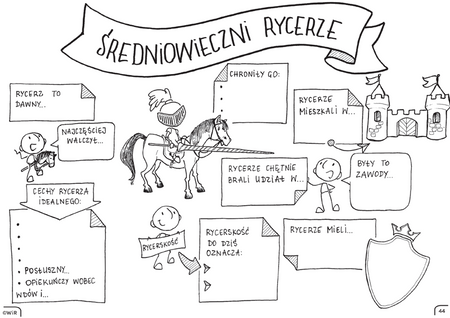 ŚREDNIOWIECZNI RYCERZE
RYCERZ TO
DAWNY...
NAJCZĘŚCIEJ
WALCZYŁ...
CECHY RYCERZA
IDEALNEGO:
• POSŁUSZNY...
• OPIEKUŃCZY WOBEC
WDÓW I...
CHRONIŁY GO:
RYCERZE
MIESZKALI W...
RYCERZE CHĘTNIE
BRALI UDZIAŁ W...
BYŁY TO
ZAWODY...
RYCERSKOŚĆ
RYCERSKOŚĆ
DO DZIŚ
OZNACZA:
RYCERZE MIELI...
©WiR
44